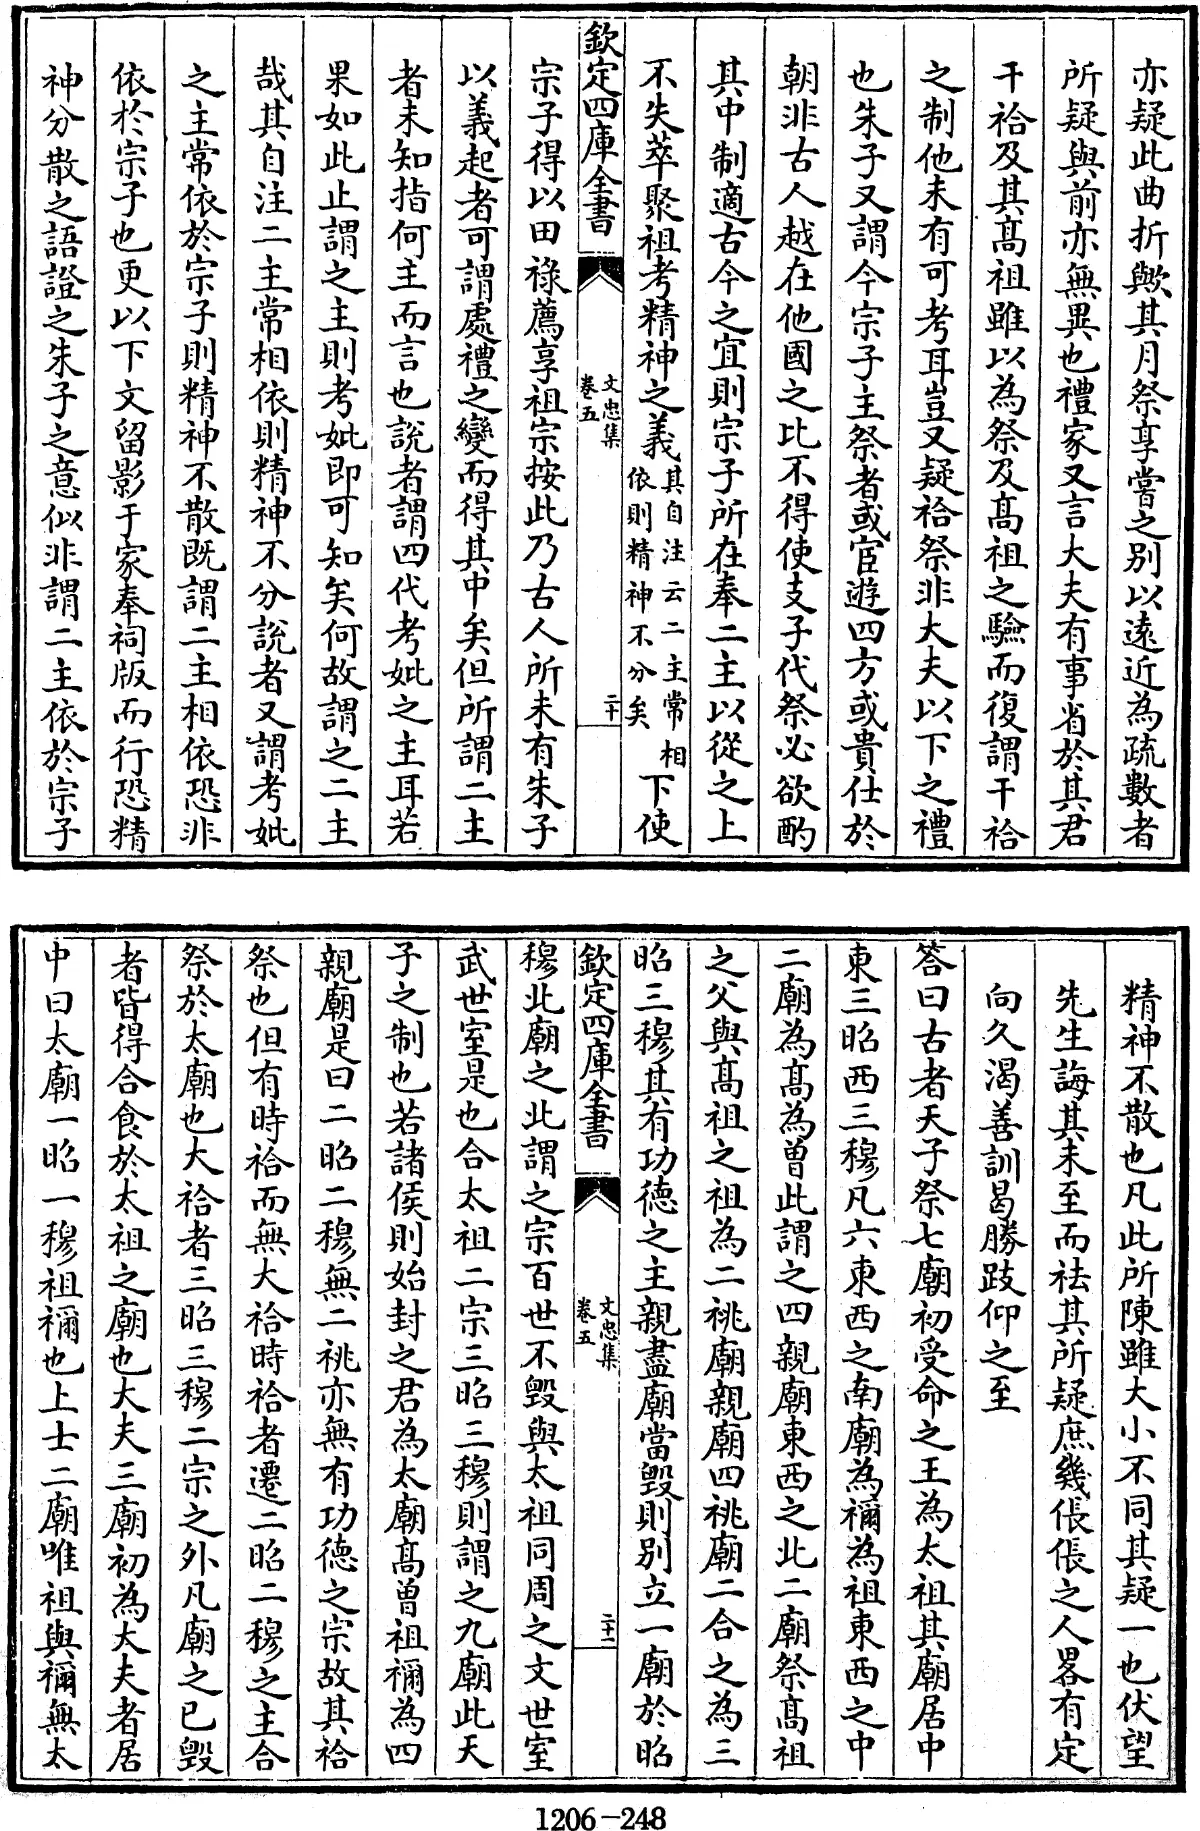 亦疑此曲折歟其月祭享嘗之别以遠近為疏數者
所疑與前亦無異也禮家又言大夫有事省於其君
干祫及其髙祖雖以為祭及髙祖之驗而復謂干祫
之制他未有可考耳豈又疑祫祭非大夫以下之禮
也朱子又謂今宗子主祭者或宦遊四方或貴仕於
朝非古人越在他國之比不得使支子代祭必欲酌
其中制適古今之宜則宗子所在奉二主以從之上
不失萃聚祖考精神之義其自注云二主常相依則精神不分矣下使
欽定四庫全書
文忠集
卷五
二十
宗子得以田祿薦享祖宗按此乃古人所未有朱子
以義起者可謂處禮之變而得其中矣但所謂二主
者未知指何主而言也說者謂四代考妣之主耳若
果如此止謂之主則考妣即可知矣何故謂之二主
哉其自注二主常相依則精神不分說者又謂考妣
之主常依於宗子則精神不散既謂二主相依恐非
依於宗子也更以下文留影于家奉祠版而行恐精
神分散之語證之朱子之意似非謂二主依於宗子
精神不散也凡此所陳雖大小不同其疑一也伏望
先生誨其未至而袪其所疑庶幾倀倀之人畧有定
向久渴善訓曷勝跂仰之至
答曰古者天子祭七廟初受命之王為太祖其廟居中
東三昭西三穆凡六東西之南廟為禰為祖東西之中
二廟為髙為曽此謂之四親廟東西之北二廟祭髙祖
之父與髙祖之祖為二祧廟親廟四祧廟二合之為三
昭三穆其有功德之主親盡廟當毀則别立一廟於昭
欽定四庫全書
文忠集
卷五
二十一
穆北廟之北謂之宗百世不毀與太祖同周之文世室
武世室是也合太祖二宗三昭三穆則謂之九廟此天
子之制也若諸侯則始封之君為太廟髙曽祖禰為四
親廟是曰二昭二穆無二祧亦無有功德之宗故其祫
祭也但有時祫而無大祫時祫者遷二昭二穆之主合
祭於太廟也大祫者三昭三穆二宗之外凡廟之已毀
者皆得合食於太祖之廟也大夫三廟初為大夫者居
中曰太廟一昭一穆祖禰也上士二廟唯祖與禰無太
1206-248